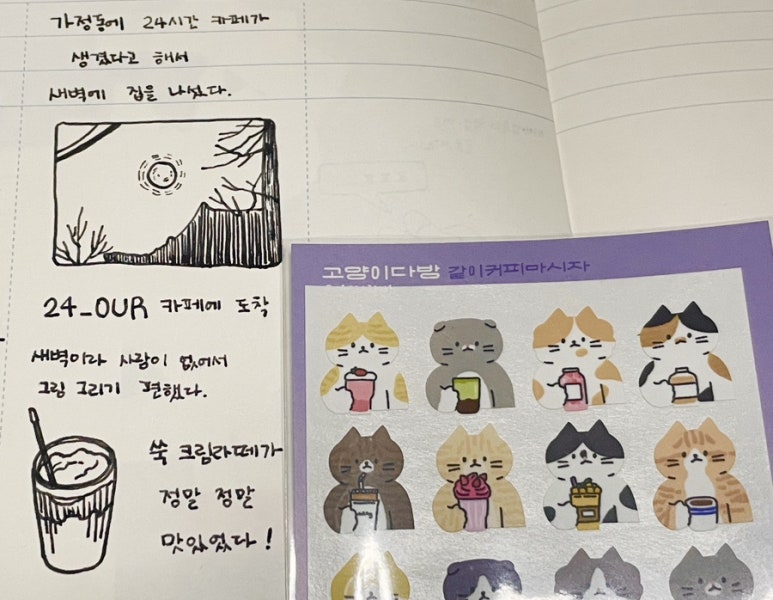 가정동에 24시간 카페가
생겼다고 해서
새벽에 집을 나섰다.
24_OUR 카페에 도착
새벽이라 사람이 없어서
그림 그리기 편했다.
쑥 크림라떼가
정말 정말
맛있었다!
고양이다방 같이커피마시자